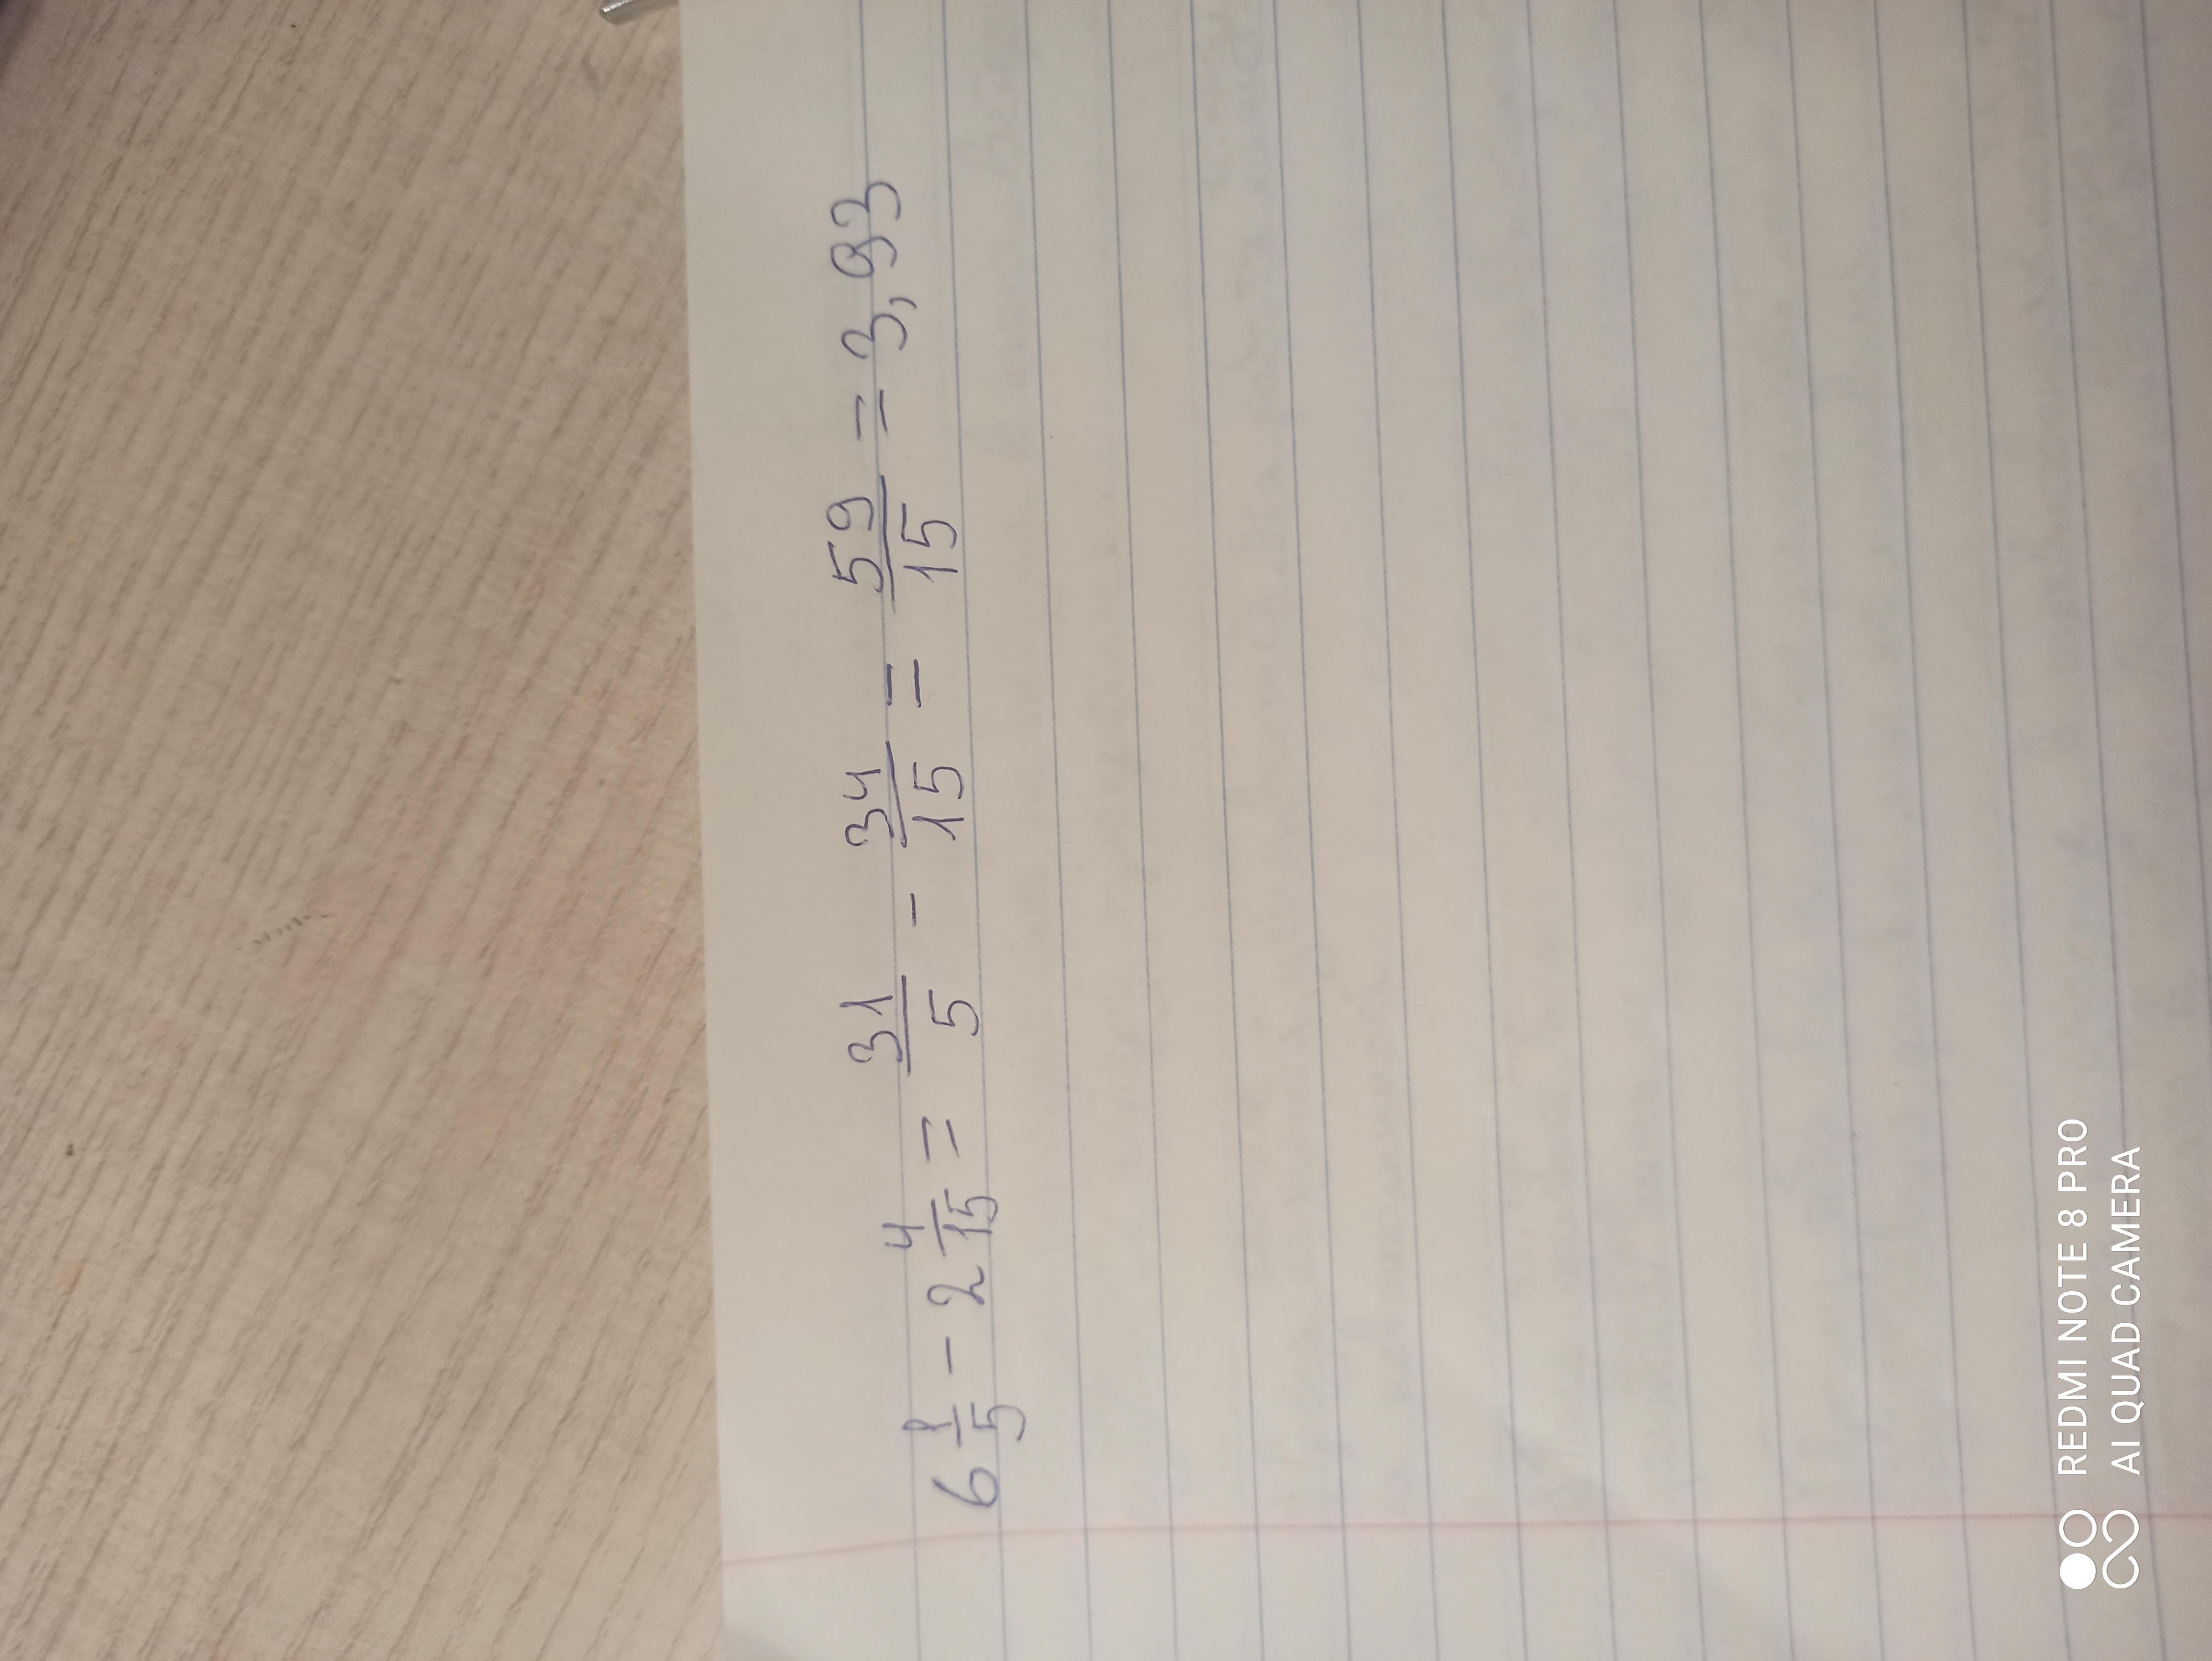 6 1/5 - 2 4/15 = 31/5 - 34/15 = 59/15 = 3,93
REDMI NOTE 8 PRO
AI QUAD CAMERA